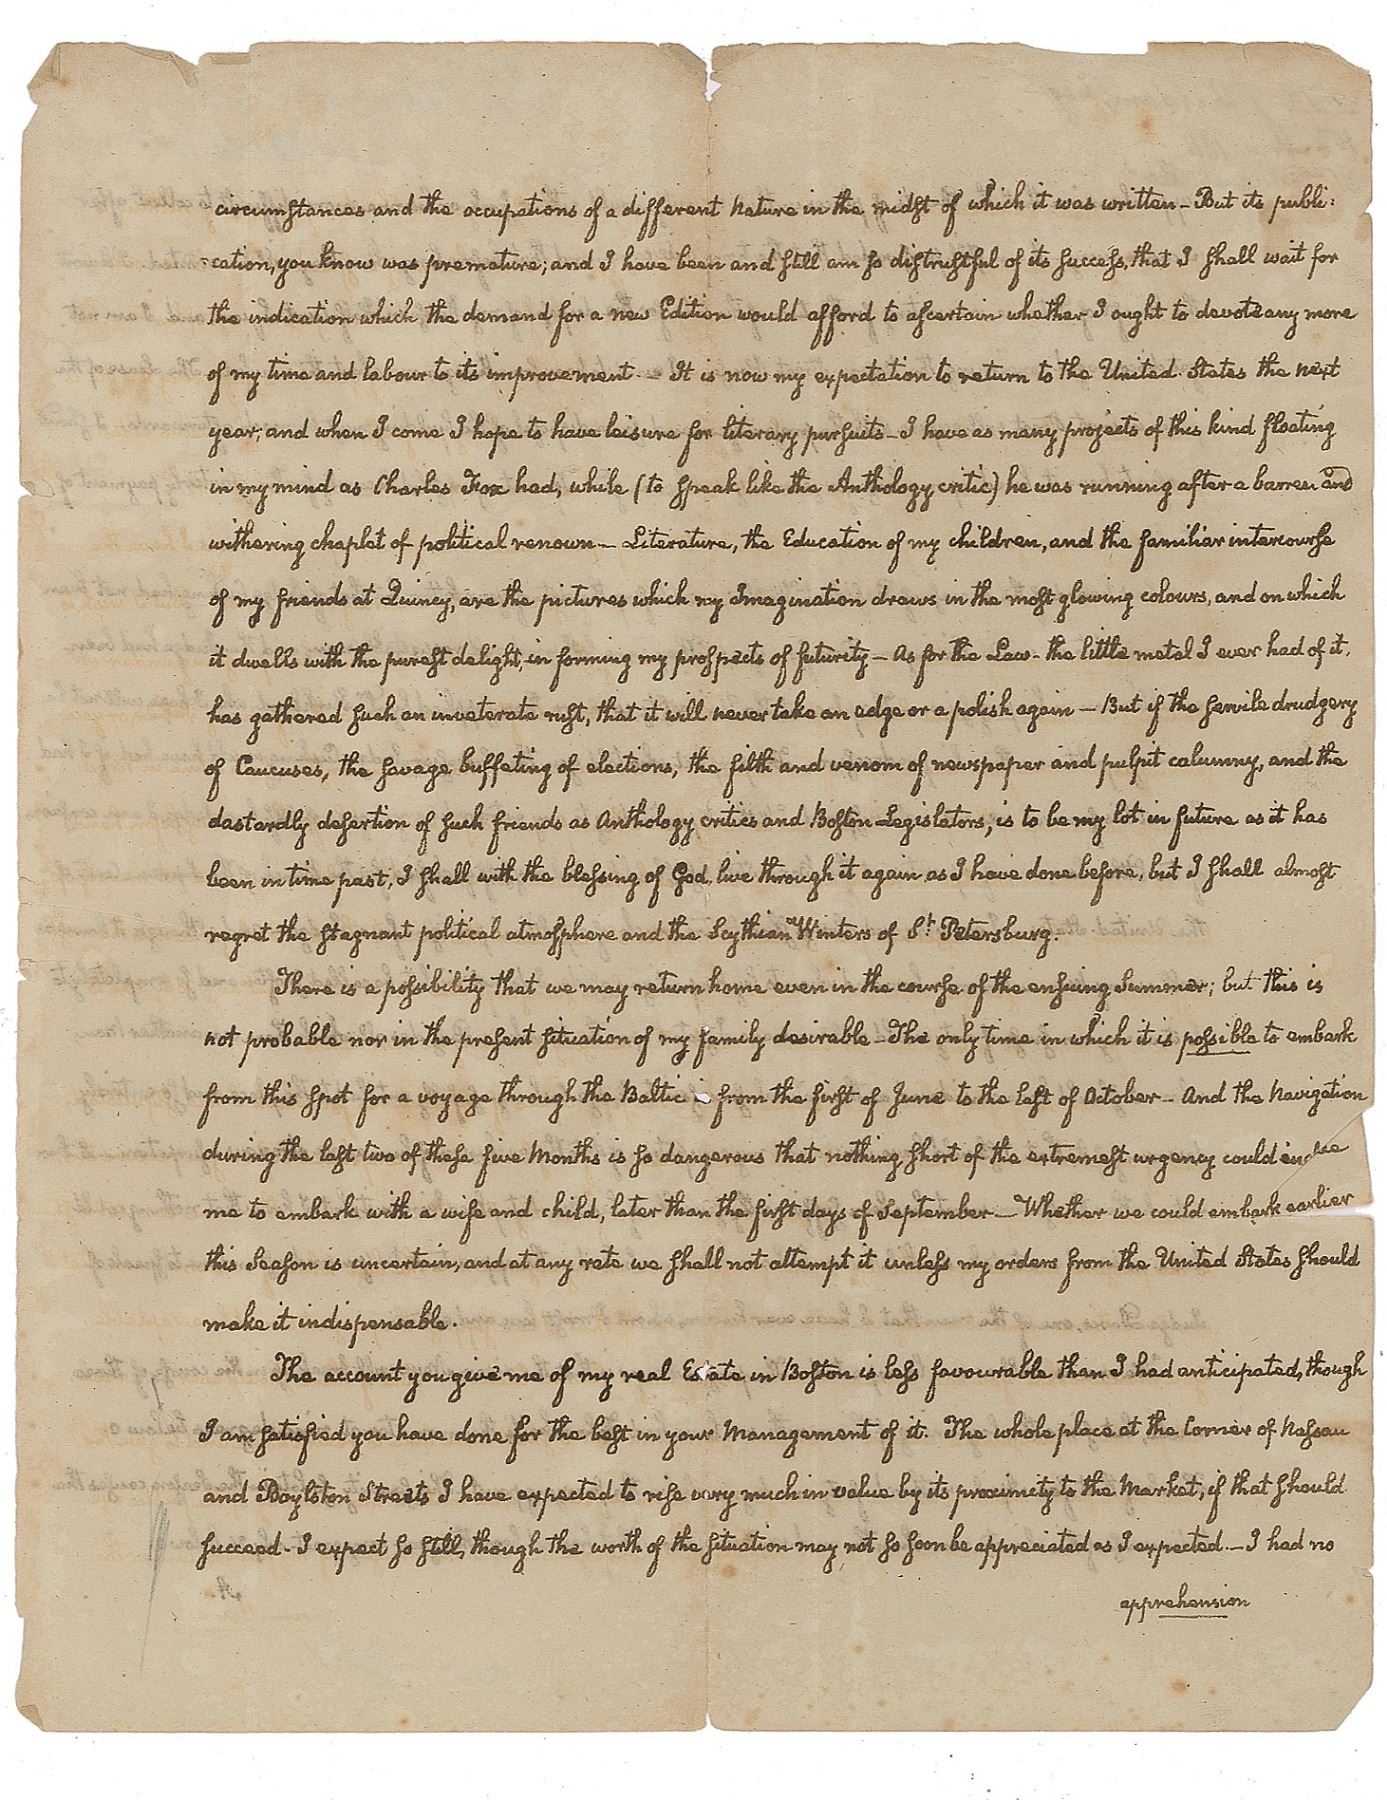 circumstances and the occupations of a different nature in the midst of which it was written – But its publi:
:cation, you know was premature; and I have been and still am so distrustful of its success, that I shall wait for
the indication which the demand for a new Edition would afford to ascertain whether I ought to devote any more
of my time and labour to its improvement – It is now my expectation to return to the United States the next
year; and when I come I hope to have leisure for literary pursuits – I have as many projects of this kind floating
in my mind as Charles Fox had, while (to speak like the Anthology critic) he was running after a barren and
withering chaplet of political renown – Literature, the Education of my children, and the familiar intercourse
of my friends at Quincy, are the pictures which my Imagination draws in the most glowing colours, and on which
it dwells with the purest delight, in forming my prospects of futurity – As for the Law – the little metal I ever had of it,
has gathered such an inveterate rust, that it will never take an edge or a polish again – But if the servile drudgery
of Caucuses, the savage buffeting of elections, the filth and venom of newspaper and pulpit calumny, and the
dastardly desertion of such friends as Anthology critics and Boston Legislators, is to be my lot in future as it has
been in time past, I shall with the blessing of God, live through it again as I have done before, but I shall almost
regret the stagnant political atmosphere and the Scythian Winters of St. Petersburg.
There is a possibility that we may return home even in the course of the ensuing Summer; but this is
not probable nor in the present situation of my family desirable – The only time in which it is possible to embark
from this spot for a voyage through the Baltic is from the first of June to the last of October – And the Navigation
during the last two of these five Months is so dangerous that nothing short of the extremest urgency could induce
me to embark with a wife and child, later than the first days of September – Whether we could embark earlier
this Season is uncertain, and at any rate we shall not attempt it unless my orders from the United States should
make it indispensable.
The account you give me of my real Estate in Boston is less favourable than I had anticipated, though
I am satisfied you have done for the best in your Management of it. The whole place at the Corner of Nassau
and Boylston Streets I have expected to rise very much in value by its proximity to the Market, if that should
succeed – I expect so still, though the worth of the situation may not so soon be appreciated as I expected. – I had no
apprehension